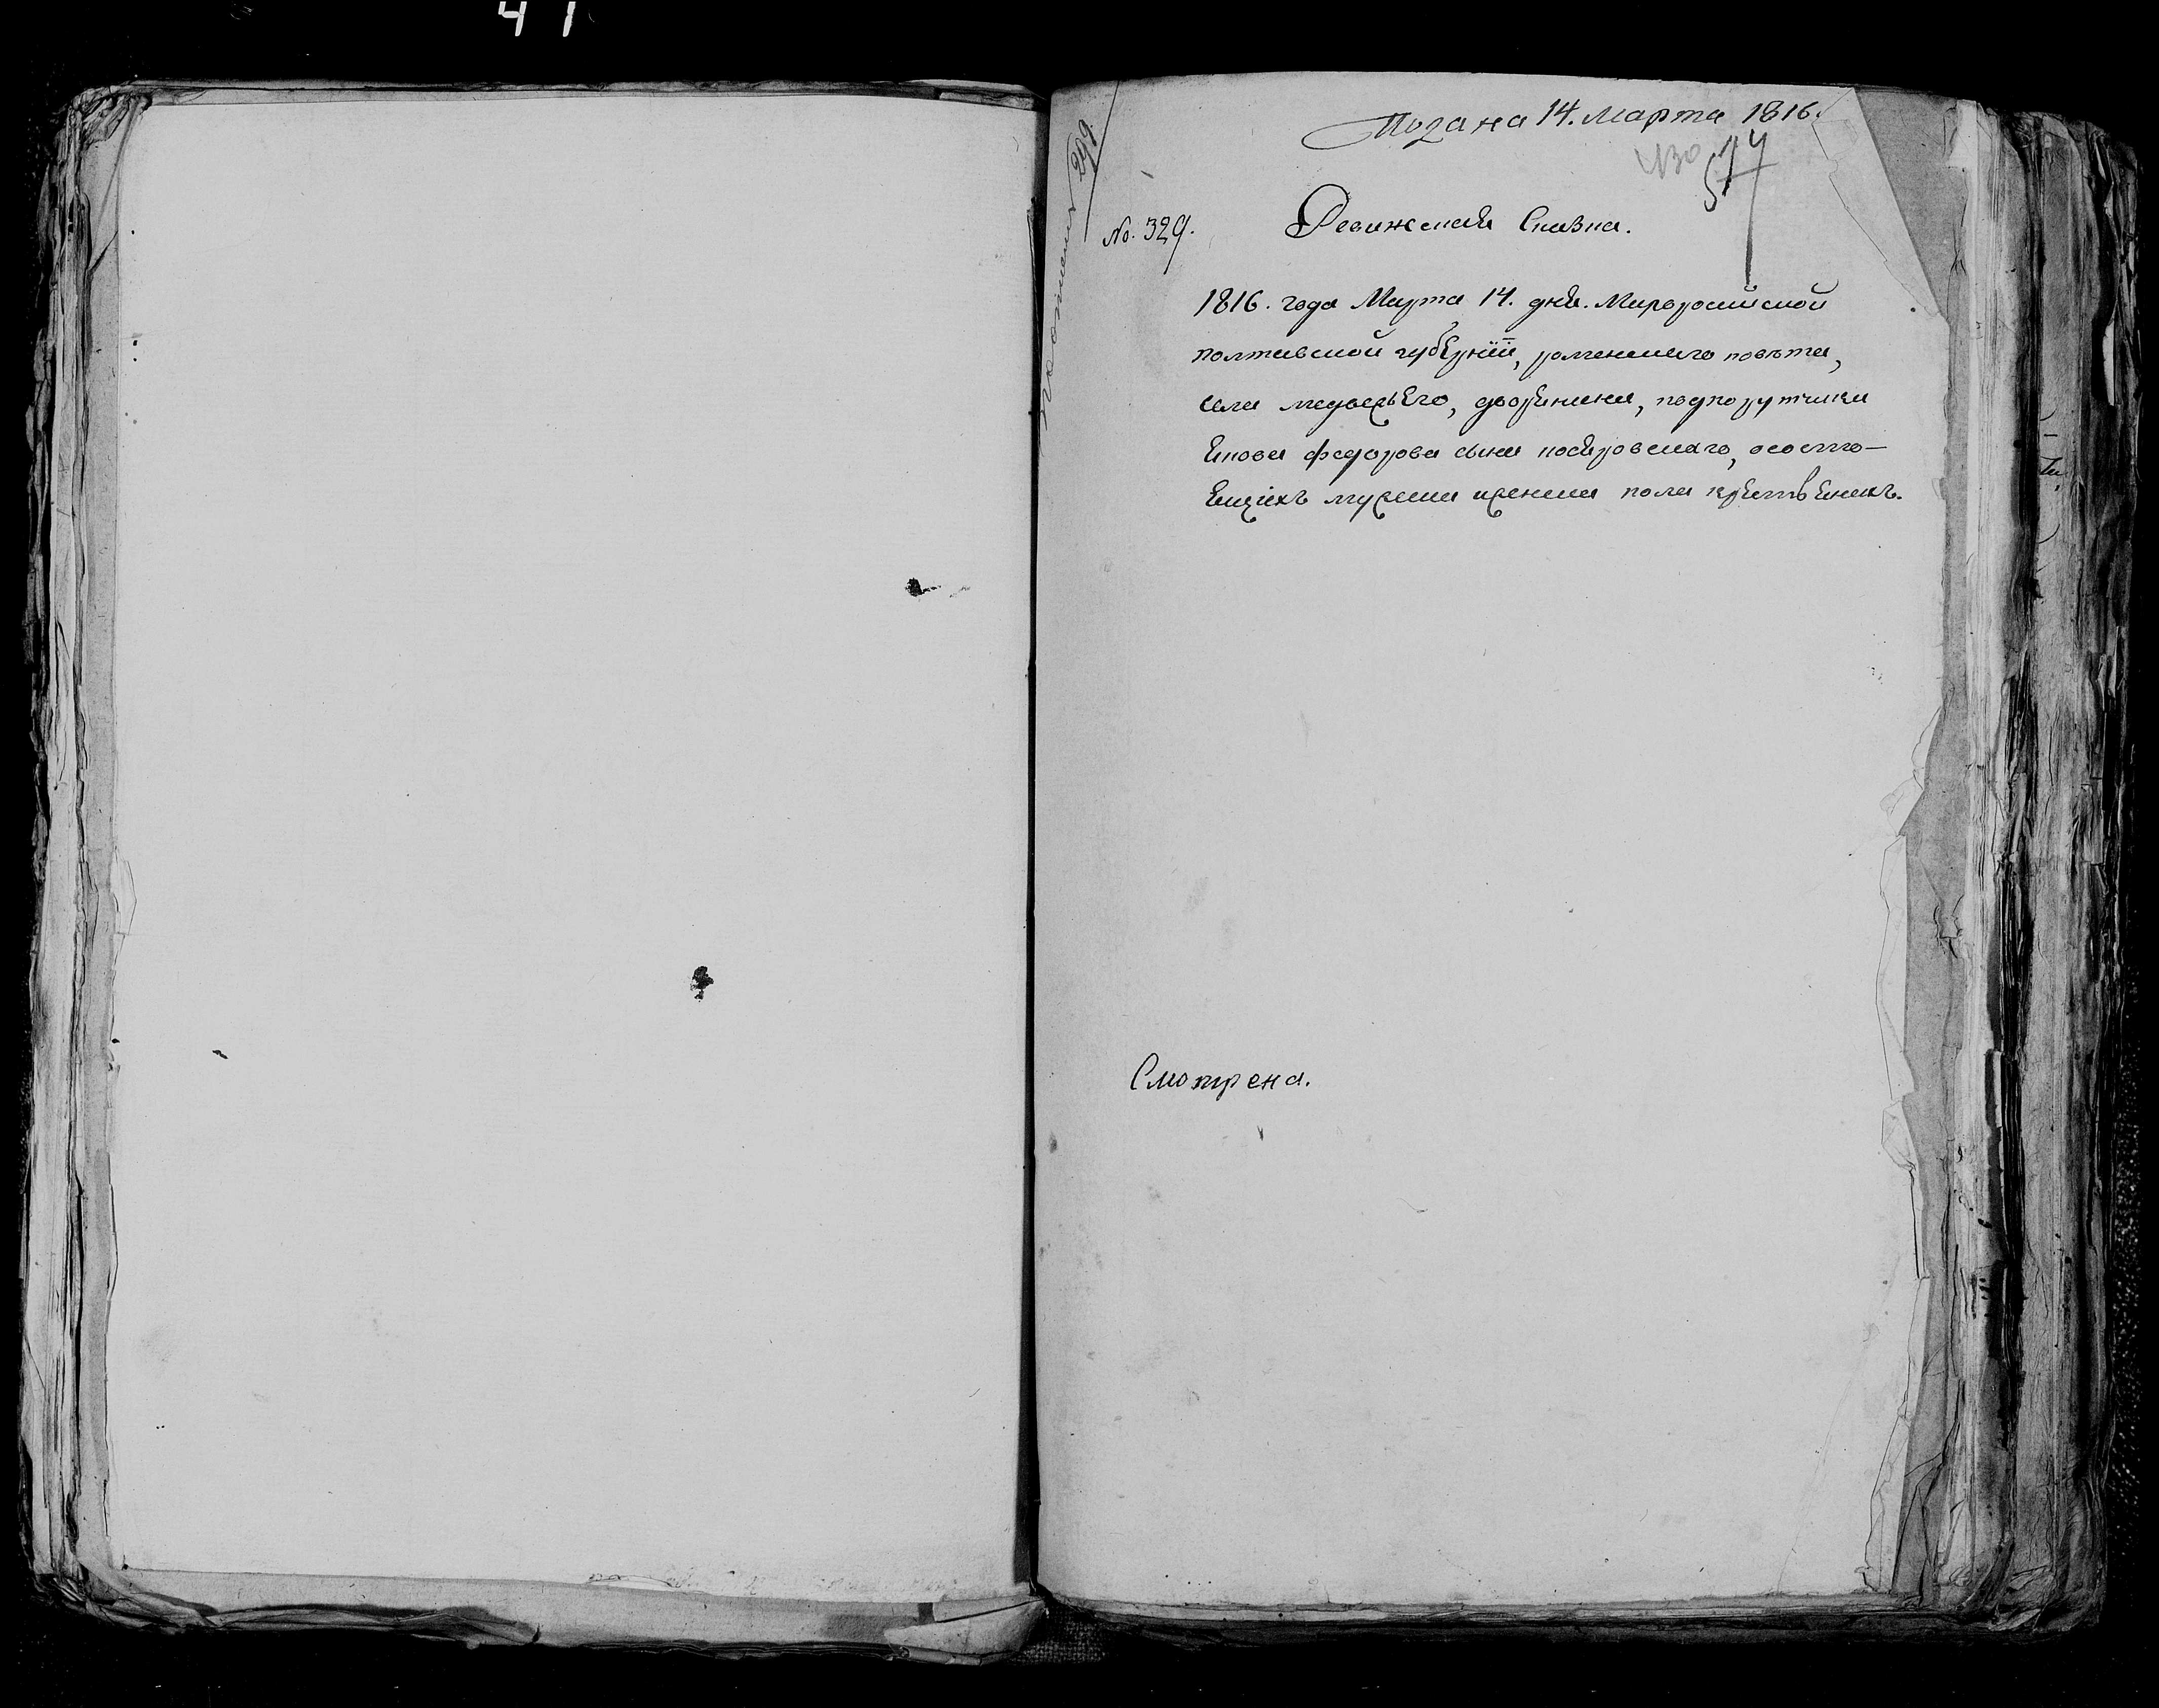 41
Подана 14. Марта 1816.
430
574
299
No. 329.
Ревижская Сказка.
1816. года Марта 14. дня. Малоросийской
полтавской губернїи, роменскаго повѣта,
села медвежьего, дворянина, подпорутчика
якова федорова сына посяровскаго, осостоящихъ мужеска иженска пола крестьянахъ.
Смотрена.